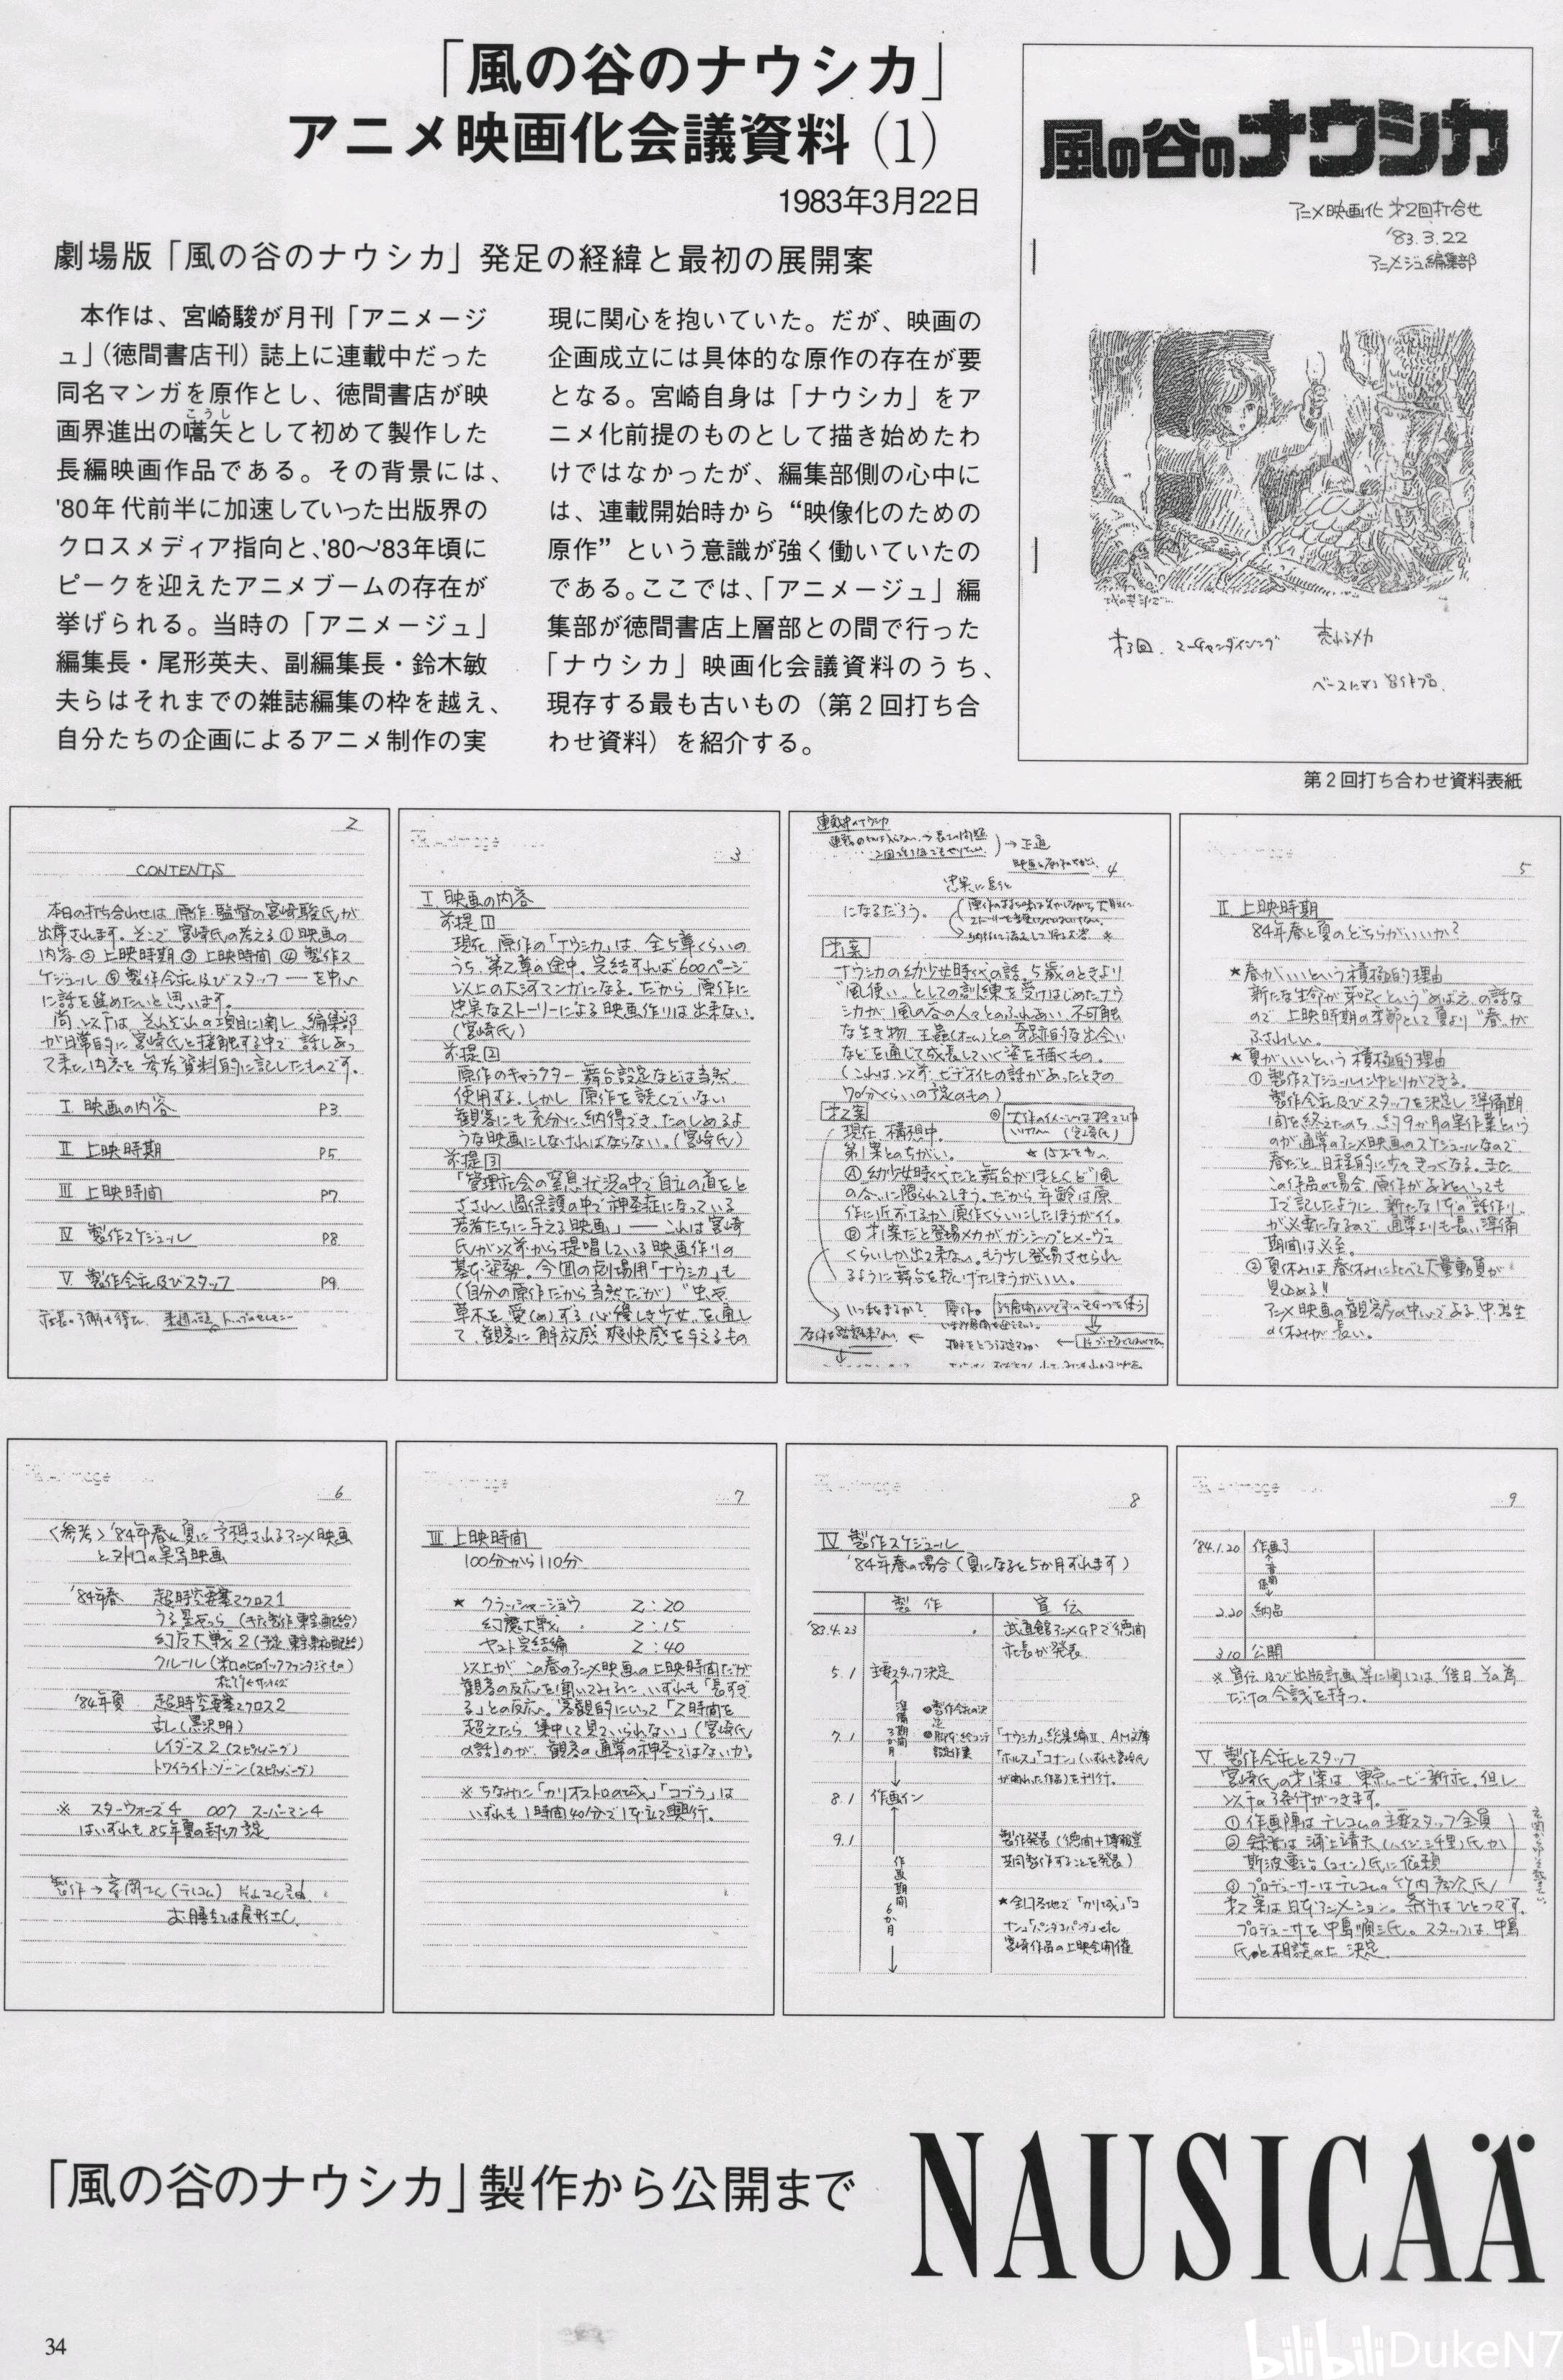 「風の谷のナウシカ」
アニメ映画化会議資料(1)
1983年3月22日
劇場版「風の谷のナウシカ」発足の経緯と最初の展開案
本作は、宮崎駿が月刊「アニメージ
ュ」(徳間書店刊)誌上に連載中だった
同名マンガを原作とし、徳間書店が映
画界進出の嚆矢として初めて製作した
こうし
長編映画作品である。その背景には、
'80年代前半に加速していった出版界の
クロスメディア指向と、'80〜'83年頃に
ピークを迎えたアニメブームの存在が
挙げられる。当時の「アニメージュ」
編集長・尾形英夫、副編集長・鈴木敏
夫らはそれまでの雑誌編集の枠を越え、
自分たちの企画によるアニメ制作の実
現に関心を抱いていた。だが、映画の
企画成立には具体的な原作の存在が要
となる。宮崎自身は「ナウシカ」をア
ニメ化前提のものとして描き始めたわ
けではなかったが、編集部側の心中に
は、連載開始時から“映像化のための
原作”という意識が強く働いていたの
である。ここでは、「アニメージュ」編
集部が徳間書店上層部との間で行った
「ナウシカ」映画化会議資料のうち、
現存する最も古いもの(第2回打ち合
わせ資料)を紹介する。
風の谷のナウシカ
アニメ映画化 才2回打合せ
'83.3.22
アニメージュ編集部
才3回 マーチャンダイジング
売れるメカ
第2回打ち合わせ資料表紙
2
CONTENTS
本日の打ち合わせは、原作・監督の宮崎駿氏が
出席されます。そこで宮崎氏の考える①映画の
内容②上映時期③上映時間④製作ス
ケジュール⑤製作会社及びスタッフ――を中心
に話を進めたいと思います。
尚、以下は、それぞれの項目に関し、編集部
が日常的に宮崎氏と接触する中で、話しあっ
て来た内容を参考資料的に記したものです。
I 映画の内容 P3
II 上映時期 P5
III 上映時間 P7
IV 製作スケジュール P8
V 製作会社及びスタッフ P9
3
I 映画の内容
前提1
現在、原作の「ナウシカ」は、全5章くらいの
うち、第2章の途中。完結すれば600ページ
以上の大河マンガになる。だから、原作に
忠実なストーリーによる映画作りは出来ない。
(宮崎氏)
前提2
原作のキャラクター、舞台設定などは当然、
使用する。しかし、原作を読んでいない
観客にも充分に納得でき、たのしめるよ
うな映画にしなければならない。(宮崎氏)
前提3
「管理社会の窒息状況の中で自立の道をと
ざされ、過保護の中で神経症になっている
若者たちに与える映画」――これは宮崎
氏が以前から提唱している映画作りの
基本姿勢。今回の劇場用「ナウシカ」も
(自分の原作だから当然だが)“虫や
草木を愛(め)する心優しき少女”を通し
て、観客に解放感、爽快感を与えるもの
4
になるだろう。
才1案
ナウシカの幼少女時代の話。5歳のときより
“風使い”としての訓練を受けはじめたナウ
シカが、風の谷の人々とのふれあい、不可触
な生き物、王蟲(オーム)との奇跡的な出会い
などを通じて成長していく姿を描くもの。
(これは、以前、ビデオ化の話があったときの
70分くらいの予定のもの)
才2案
現在、構想中。
第1案とのちがい。
Ⓐ幼少女時代だと舞台がほとんど“風
の谷”に限られてしまう。だから年齢は原
作に近づけるか原作くらいにしたほうがイイ。
Ⓑ才1案だと登場メカがガンシップとメーヴェ
くらいしか出て来ない。もう少し登場させられ
るように舞台を拡げたほうがいい。
5
II 上映時期
84年春と夏のどちらがいいか?
★春がいいという積極的理由
新たな生命が芽ぶくという“めばえ”の話な
ので、上映時期の季節として夏より“春”が
ふさわしい。
★夏がいいという積極的理由
①製作スケジュールにゆとりができる。
製作会社及びスタッフを決定し、準備期
間を終えたのち、約9か月の実作業という
のが通常のアニメ映画のスケジュールなので、
春だと、日程的に少々きつくなる。また、
この作品の場合、原作があるといっても
Iで記したように、新たな1本の“話作り”
が必要になるので、通常よりも長い準備
期間は必至。
②夏休みは春休みに比べて大量動員が
見込める!!
アニメ映画の観客層の中心である中・高生
の休みが長い。
6
<参考>'84年春と夏に予想されるアニメ映画
とヒットの実写映画
'84年春 超時空要塞マクロス1
うる星やつら
幻魔大戦2
クルール
'84年夏 超時空要塞マクロス2
乱(黒沢明)
レイダース2(スピルバーグ)
トワイライト・ゾーン(スピルバーグ)
※ スターウォーズ4 007 スーパーマン4
はいずれも85年夏の封切予定
7
III 上映時間
100分から110分
★ クラッシャージョウ 2:20
幻魔大戦 2:15
ヤマト完結編 2:40
以上が、この春のアニメ映画の上映時間だが
観客の反応を聞いてみるに、いずれも「長すぎ
る」との反応。客観的にいって「2時間を
超えたら、集中して見ていられない」(宮崎氏
の話)のが、観客の通常の神経ではないか。
※ ちなみに「カリオストロの城」「コブラ」は
いずれも1時間40分で1本立て興行。
8
IV 製作スケジュール
'84年春の場合(夏になると5か月ずれます)
製作 宣伝
'83.4.23 武道館アニメGPで徳間
社長が発表
5.1 主要スタッフ決定
準備期間3か月
7.1 「ナウシカ」総集編II、AM文庫
「ホルス」「コナン」(いずれも宮崎氏
が関わった作品)を刊行。
8.1 作画イン
9.1 製作発表(徳間+博報堂
共同製作することを発表)
作画期間6か月
★全国各地で「カリ城」「コ
ナン」「パンダコパンダ」etc
宮崎作品の上映会開催
9
'84.1.20 作画了
2.20 納品
3.10 公開
※宣伝及び出版計画等に関しては、後日、その為
だけの会議を持つ。
V 製作会社とスタッフ
宮崎氏の才1案は、東京ムービー新社。但し
以下の3条件がつきます。
①作画陣はテレコムの主要スタッフ全員
②録音は浦上靖夫(ハイジ、三千里)氏か
斯波重治(コナン)氏に依頼
③プロデューサーはテレコムの竹内孝次氏
才2案は日本アニメーション。条件はひとつです。
プロデューサを中島順三氏。スタッフは、中島
氏と相談の上、決定。
「風の谷のナウシカ」製作から公開まで
NAUSICAÄ
34
bilibili DukeN7